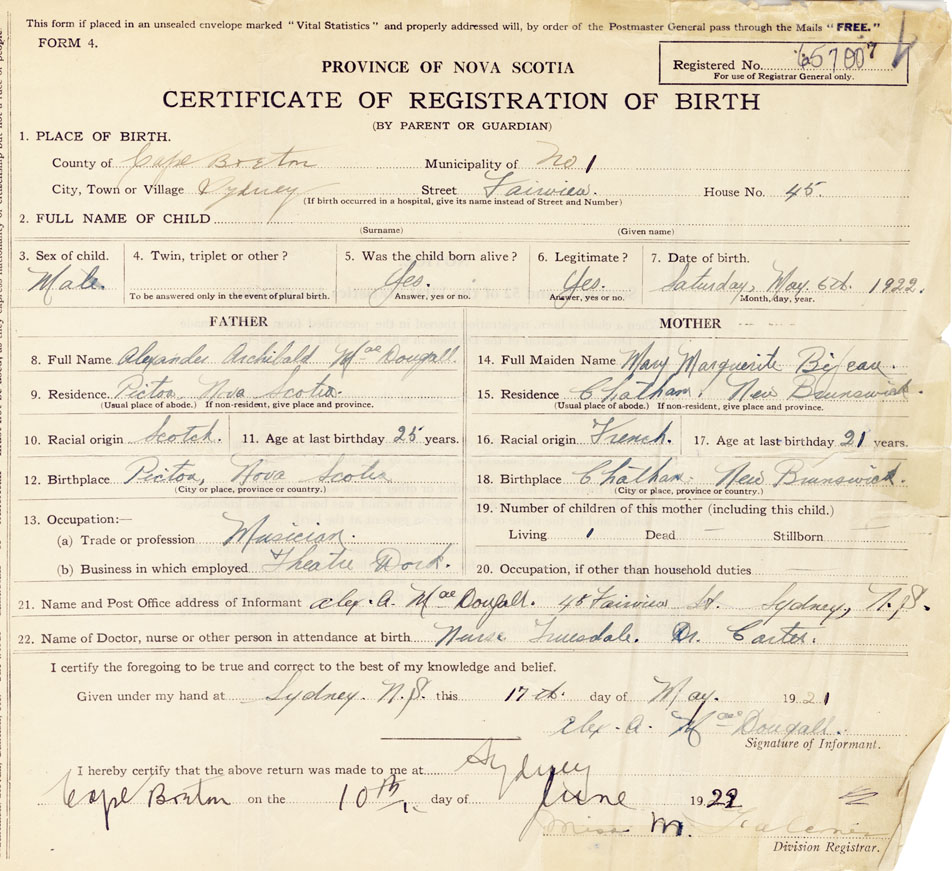 This form if placed in an unsealed envelope marked "Vital Statistics" and properly addressed will, by order of the Postmaster General pass through the Mails "FREE."
FORM 4.
Registered No. 65700 7
For use of Registrar General only.
PROVINCE OF NOVA SCOTIA
CERTIFICATE OF REGISTRATION OF BIRTH
(BY PARENT OR GUARDIAN)
1. PLACE OF BIRTH.
County of Cape Breton Municipality of No 1
City, Town or Village Sydney Street Fairview. House No. 45
(If birth occurred in a hospital, give its name instead of Street and Number)
2. FULL NAME OF CHILD
(Surname) (Given name)
3. Sex of child. 4. Twin, triplet or other? 5. Was the child born alive? 6. Legitimate? 7. Date of birth.
Male. Yes. Yes. Saturday, May. 6th. 1922.
To be answered only in the event of plural birth. Answer, yes or no. Answer, yes or no. Month, day, year.
FATHER MOTHER
8. Full Name Alexander Archibald MacDougall. 14. Full Maiden Name Mary Marguerite Bijeau.
9. Residence. Pictou, Nova Scotia. 15. Residence Chatham. New Brunswick.
(Usual place of abode.) If non-resident, give place and province. (Usual place of abode.) If non-resident, give place and province.
10. Racial origin Scotch. 11. Age at last birthday 25 years. 16. Racial origin French. 17. Age at last birthday 21 years.
12. Birthplace Pictou, Nova Scotia 18. Birthplace Chatham. New Brunswick.
(City or place, province or country.) (City or place, province or country.)
13. Occupation:— 19. Number of children of this mother (including this child.)
(a) Trade or profession Musician. Living 1 Dead — Stillborn
(b) Business in which employed Theatre Work. 20. Occupation, if other than household duties
21. Name and Post Office address of Informant Alex. A. MacDougall. 45 Fairview St. Sydney, N.S.
22. Name of Doctor, nurse or other person in attendance at birth Nurse Truesdale. Dr. Carter.
I certify the foregoing to be true and correct to the best of my knowledge and belief.
Given under my hand at Sydney. N.S. this 17th. day of May. 1921
Alex. A. MacDougall.
Signature of Informant.
I hereby certify that the above return was made to me at Sydney
Cape Breton on the 10th day of June 1922
Miss M.
Division Registrar.